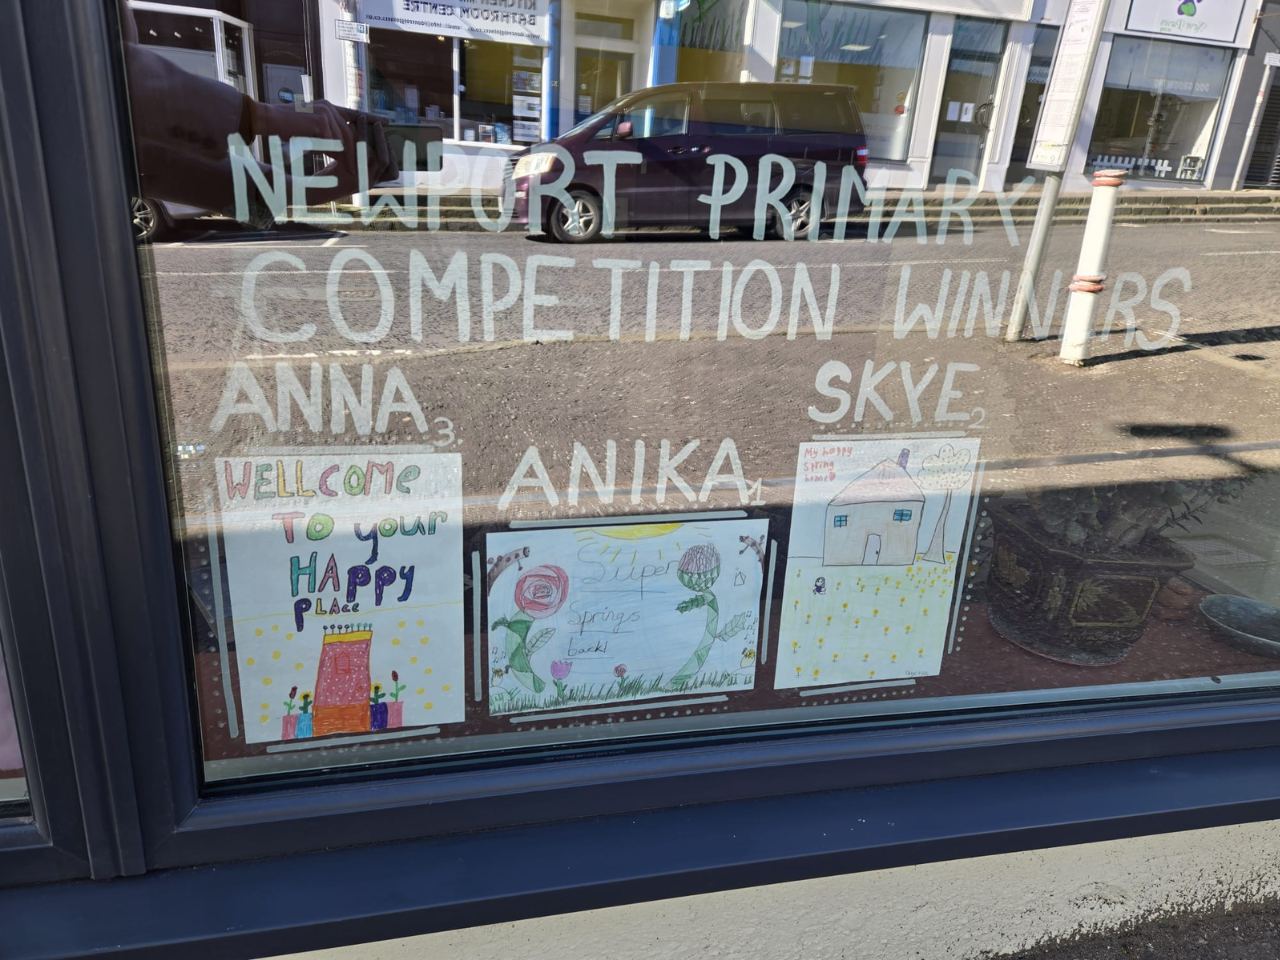 NEWPORT PRIMARY
COMPETITION WINNERS
ANNA 3
SKYE 2
ANIKA 1
WELLCOME
TO your
HAPPY
PLAce
Super
Springs
back!
My happy
spring
home
KITCHEN
BATHROOM CENTRE